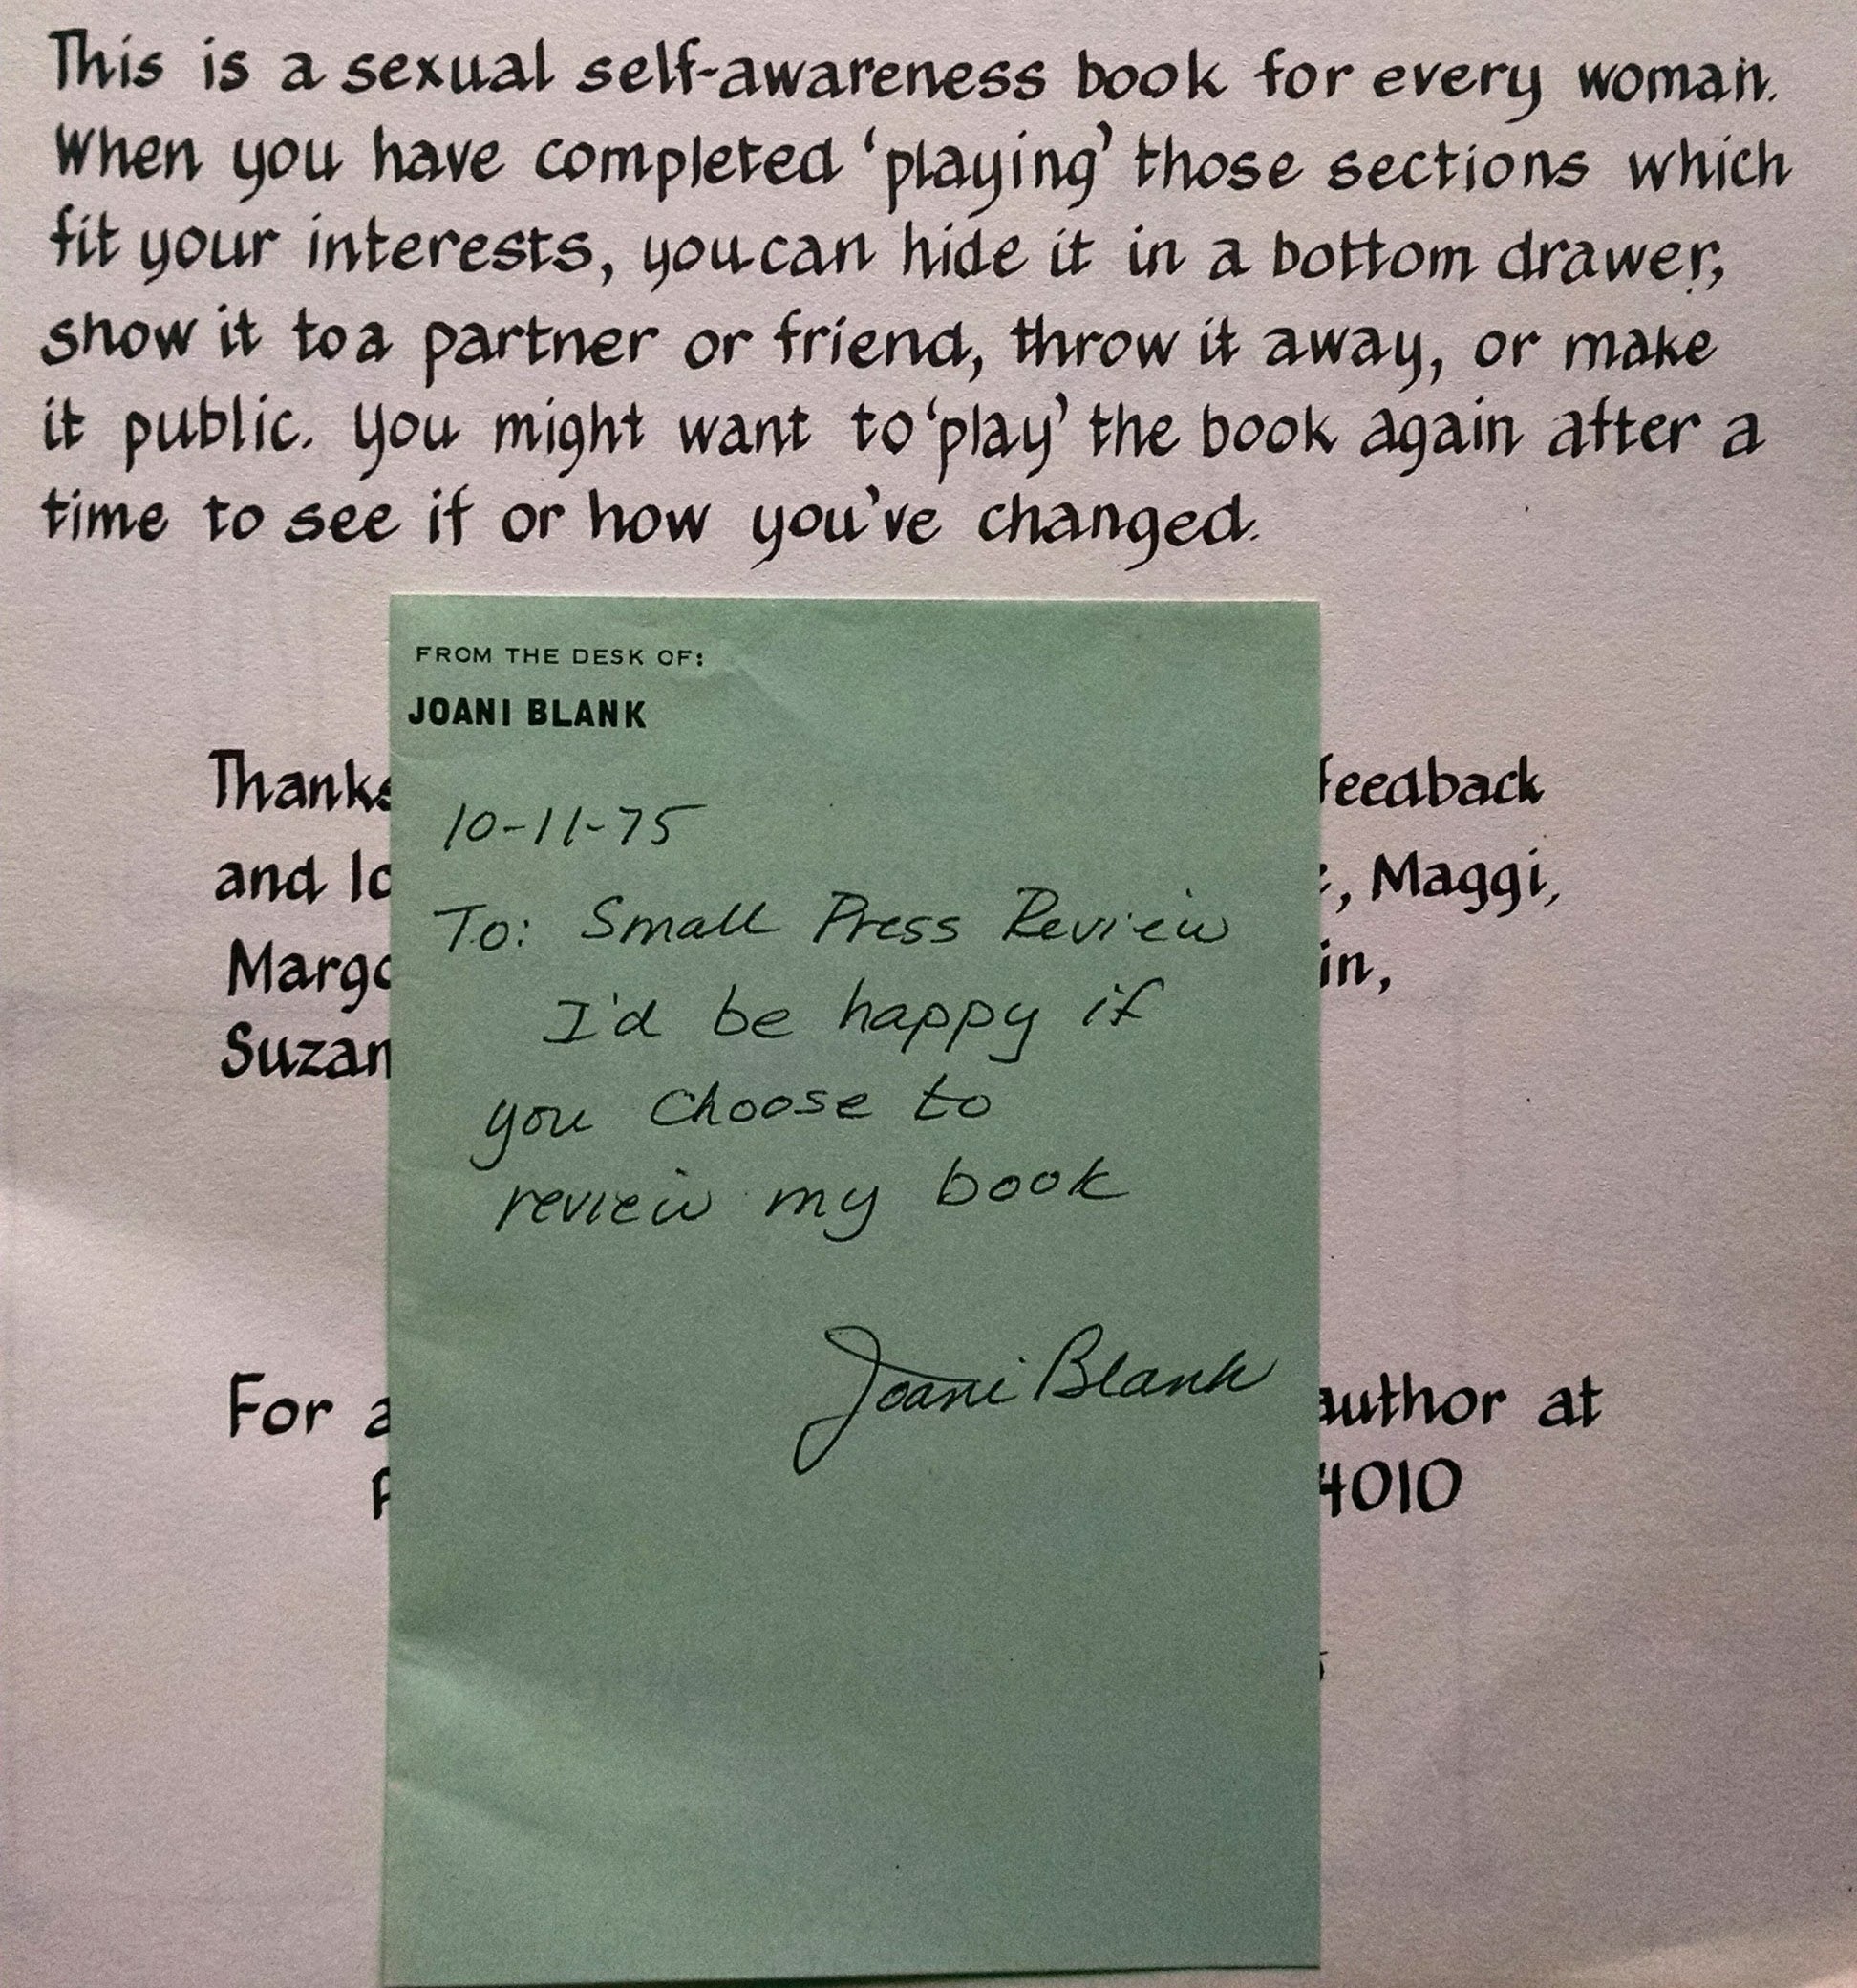 This is a sexual self-awareness book for every woman.
When you have completed 'playing' those sections which
fit your interests, you can hide it in a bottom drawer,
show it to a partner or friend, throw it away, or make
it public. You might want to 'play' the book again after a
time to see if or how you've changed.
FROM THE DESK OF:
JOANI BLANK
10-11-75
To: Small Press Review
I'd be happy if
you choose to
review my book
Joani Blank
Thanks feedback
and , Maggi,
in,
For author at
4010